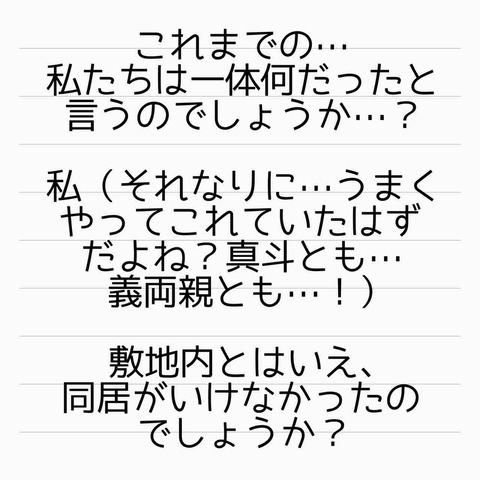 これまでの…
私たちは一体何だったと
言うのでしょうか…？
私（それなりに…うまく
やってこれていたはず
だよね？真斗とも…
義両親とも…！）
敷地内とはいえ、
同居がいけなかったの
でしょうか？